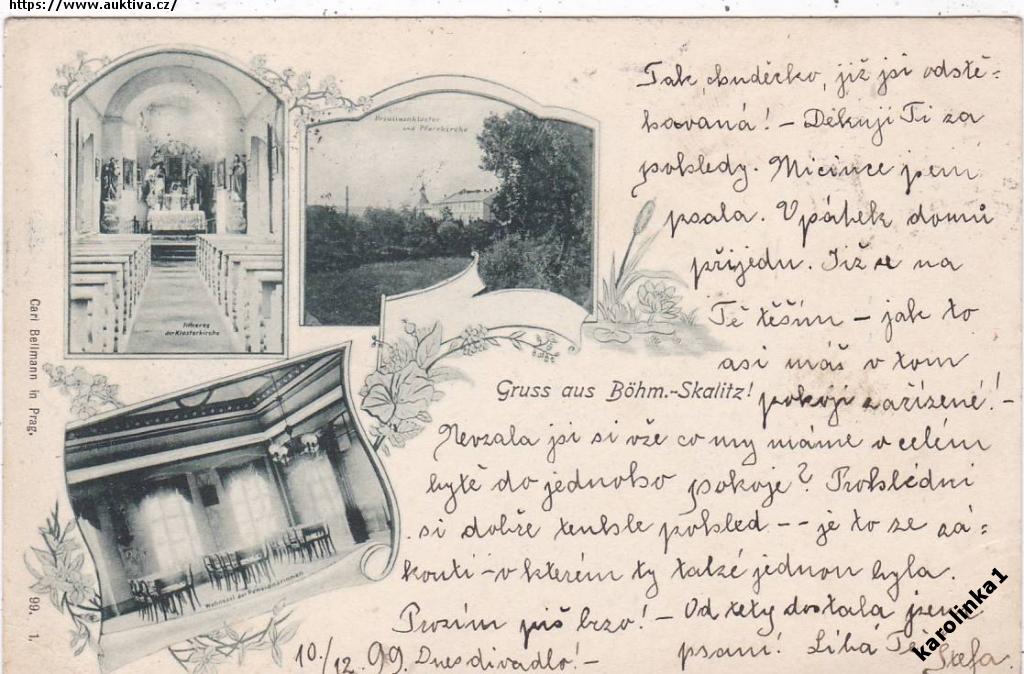 https://www.auktiva.cz/
Tak, chuděrko, již jsi odstě-
hovaná! – Děkuji Ti za
pohledy. Micince jsem
psala. V pátek domů
přijedu. Již se na
Tě těším – jak to
asi máš v tom
pokoji zařízené! –
Nevzala jsi si vše co my máme v celém
bytě do jednoho pokoje? Prohlédni
si dobře tenhle pohled – – je to ze zá-
koutí – v kterém ty také jednou byla.
Prosím piš brzo! – Od tety dostala jsem
psaní! Líbá Tě
10./12. 99. Dnes divadlo! –
Ursulinenkloster
und Pfarrkirche
Inneres
der Klosterkirche
Gruss aus Böhm.-Skalitz!
Wohnsaal der Pensionärinnen
Carl Bellmann in Prag.
99. 1.
karolinka1